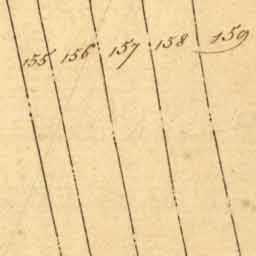 155 156 157 158 159